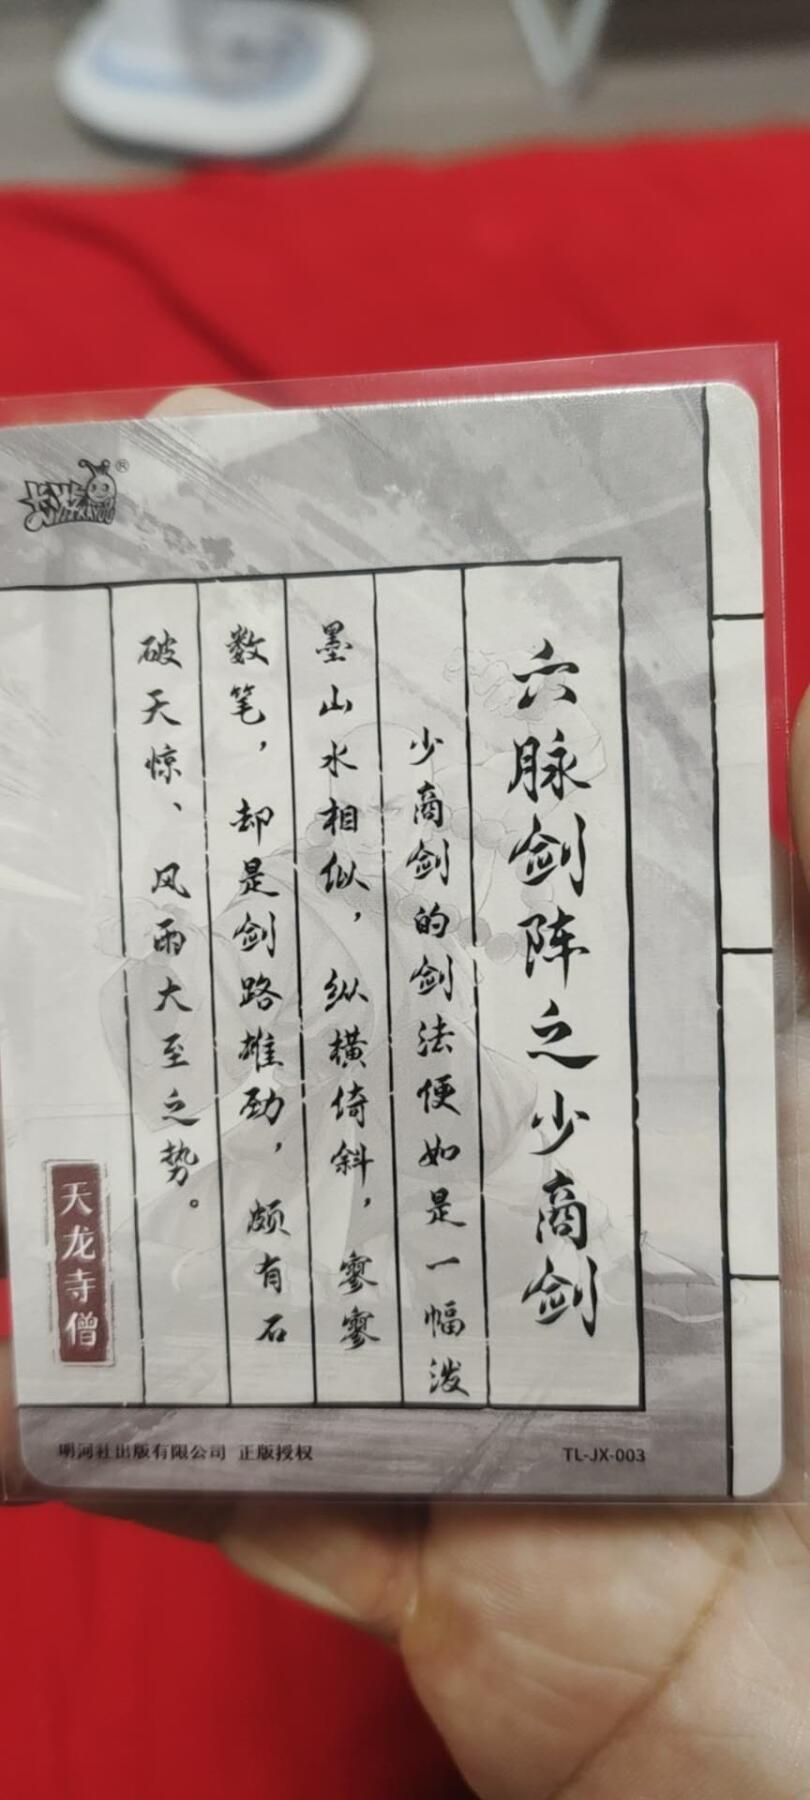 卡游
KAYOU
®
六脉剑阵之少商剑
少商剑的剑法便如是一幅泼
墨山水相似，纵横倚斜，寥寥
数笔，却是剑路雄劲，颇有石
破天惊、风雨大至之势。
天龙寺僧
明河社出版有限公司 正版授权
TL-JX-003